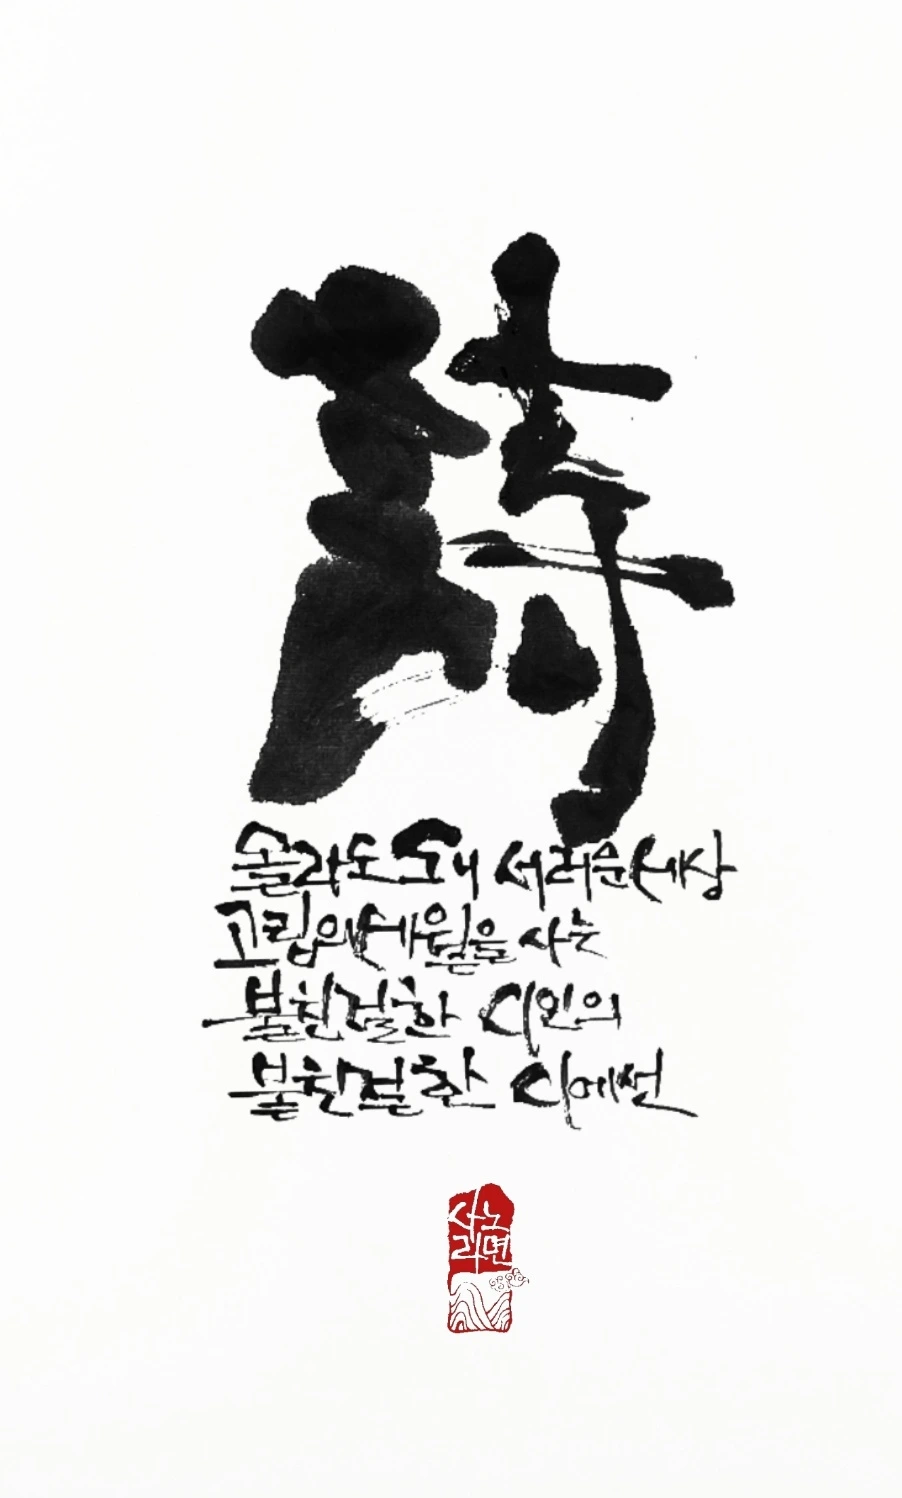 詩
서러운 세상
고립의 세월을 사는
불친절한 시인의
불친절한 시에선
사노
라면